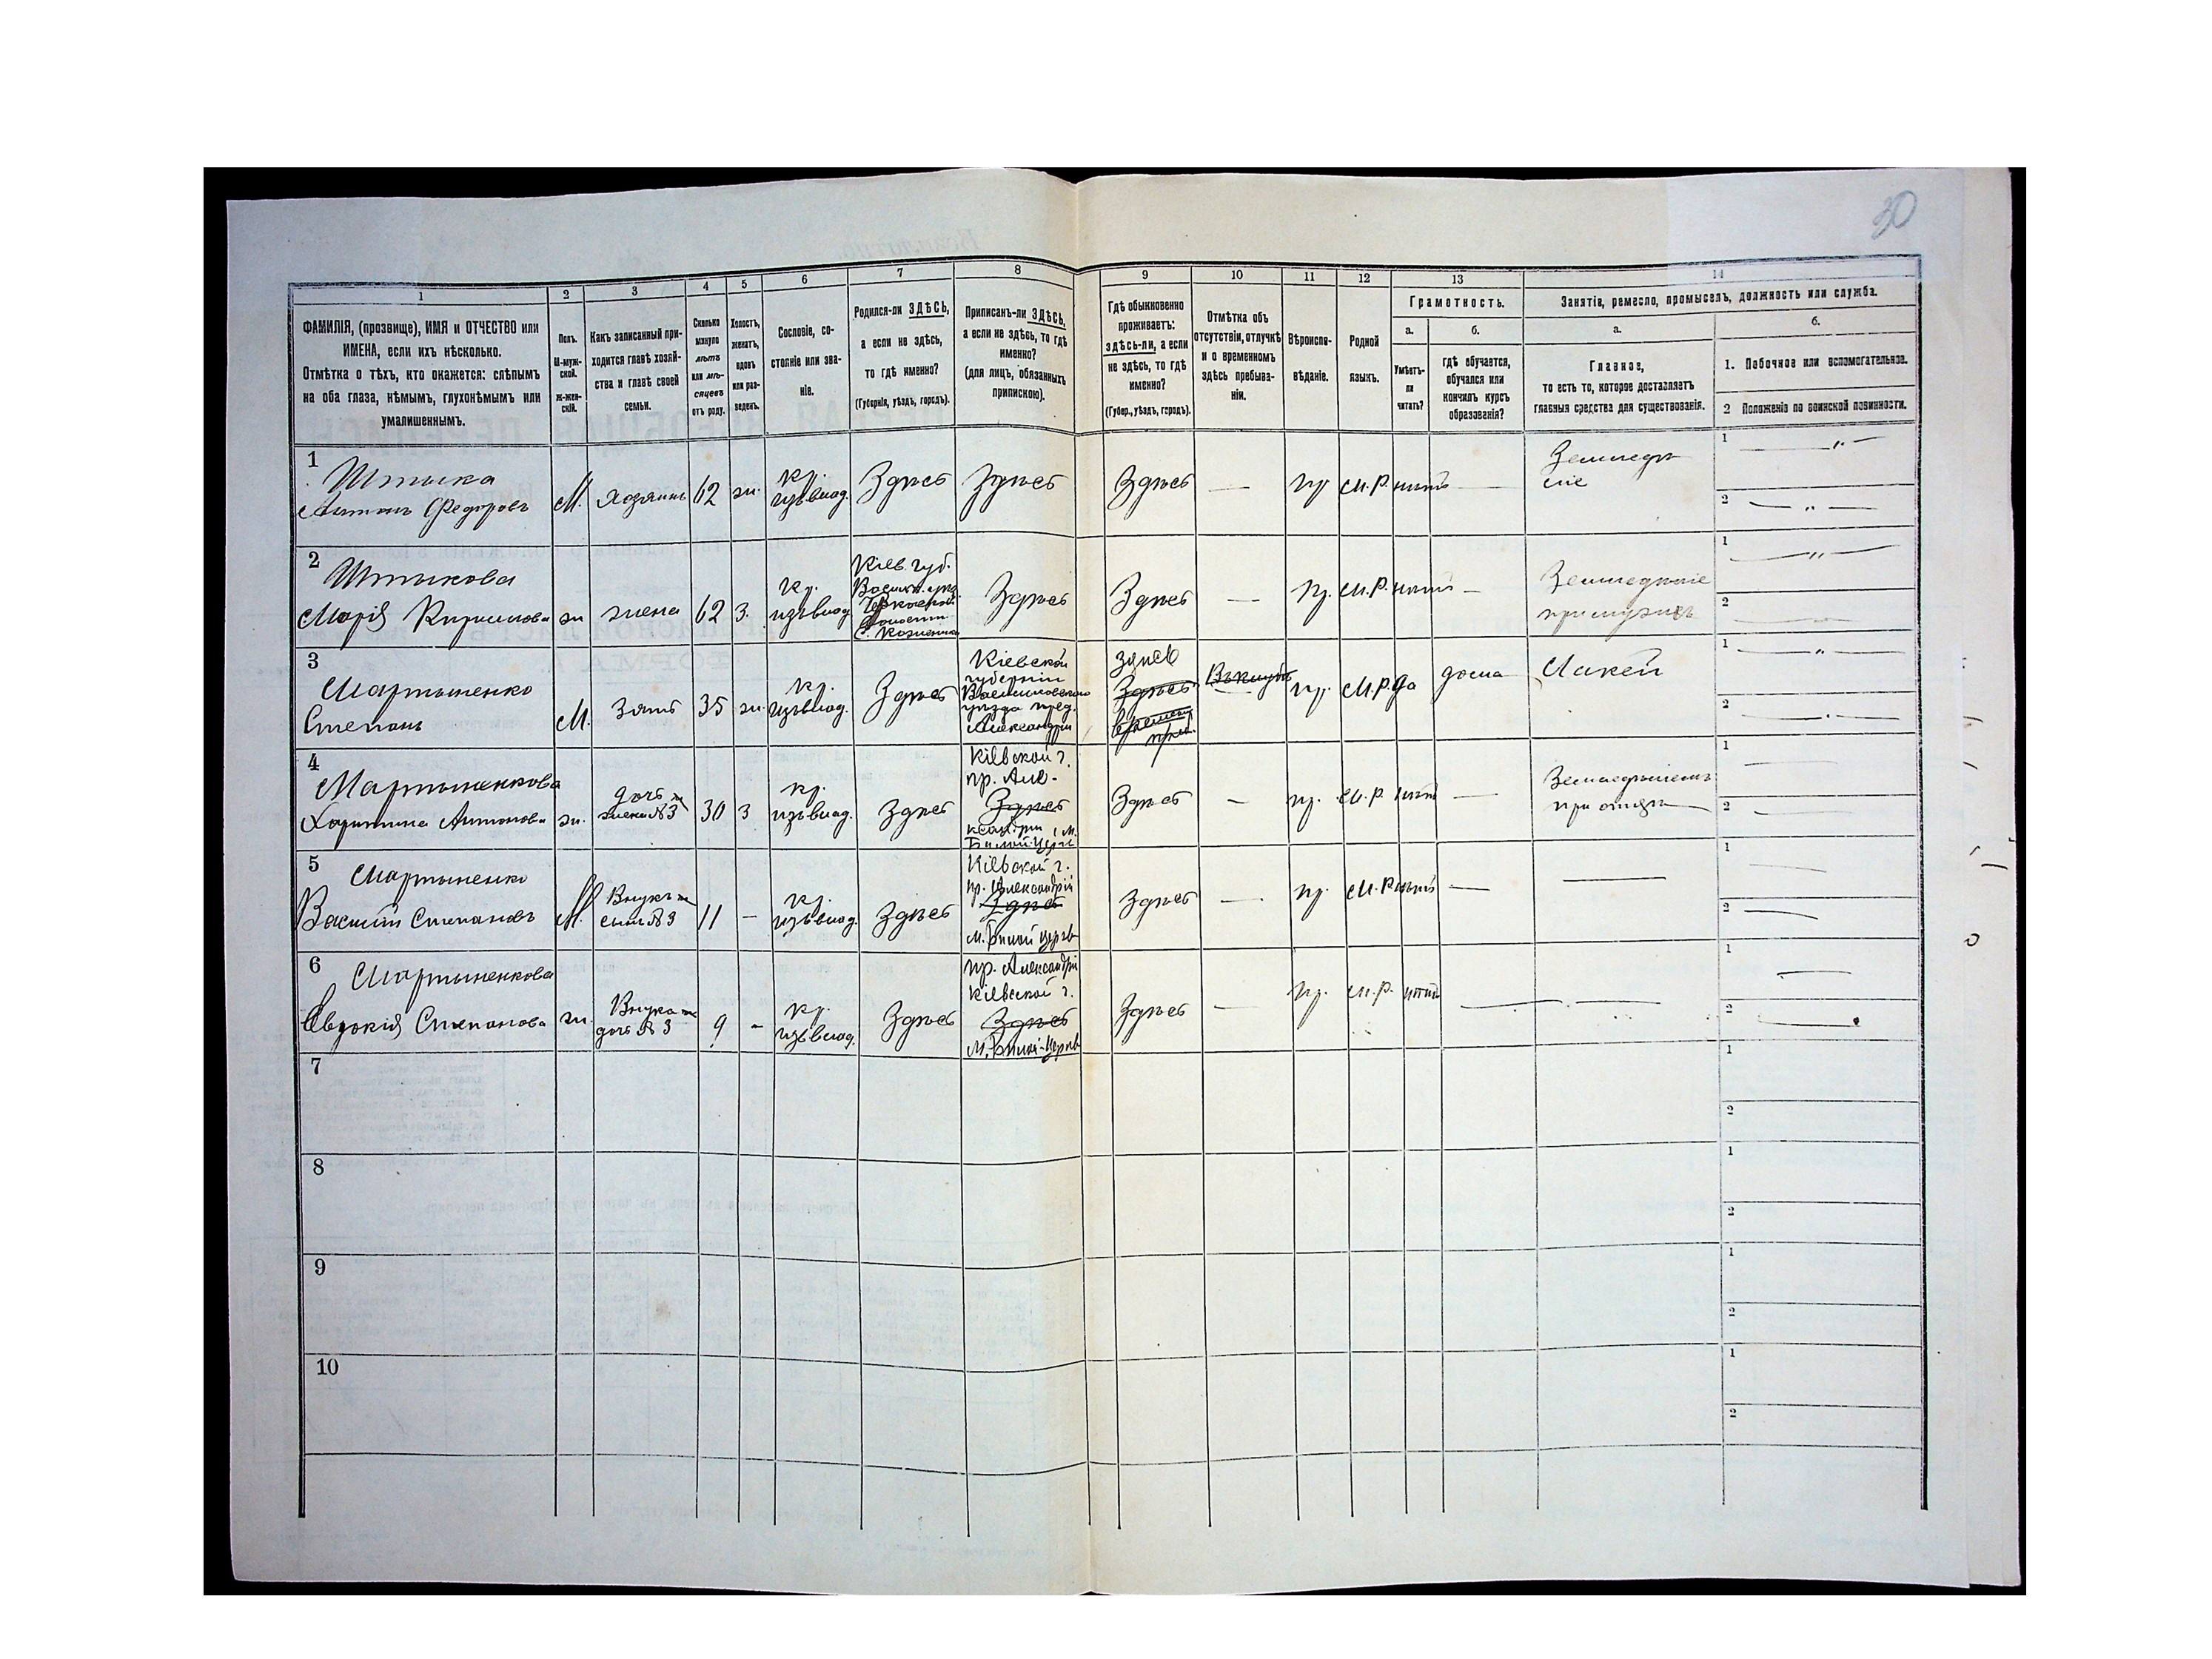 30
1
2
3
4
5
6
7
8
9
10
11
12
13
14
ФАМИЛІЯ, (прозвище), ИМЯ и ОТЧЕСТВО или
ИМЕНА, если ихъ нѣсколько.
Отмѣтка о тѣхъ, кто окажется: слѣпымъ
на оба глаза, нѣмымъ, глухонѣмымъ или
умалишеннымъ.
Полъ.
М-муж-
ской.
Ж-жен-
скій.
Какъ записанный при-
ходится главѣ хозяй-
ства и главѣ своей
семьи.
Сколько
минуло
лѣтъ
или мѣ-
сяцевъ
отъ роду.
Холостъ,
женатъ,
вдовъ
или раз-
веденъ.
Сословіе, со-
стояніе или зва-
ніе.
Родился-ли ЗДѢСЬ,
а если не здѣсь,
то гдѣ именно?
(Губернія, уѣздъ, городъ).
Приписанъ-ли ЗДѢСЬ,
а если не здѣсь, то гдѣ
именно?
(для лицъ, обязанныхъ
припискою).
Гдѣ обыкновенно
проживаетъ:
здѣсь-ли, а если
не здѣсь, то гдѣ
именно?
(Губер., уѣздъ, городъ).
Отмѣтка объ
отсутствіи, отлучкѣ
и о временномъ
здѣсь пребыва-
ніи.
Вѣроиспо-
вѣданіе.
Родной
языкъ.
Грамотность.
а.
б.
Умѣетъ-
ли
читать?
гдѣ обучается,
обучался или
кончилъ курсъ
образованія?
Занятія, ремесло, промыселъ, должность или служба.
а.
б.
Главное,
то есть то, которое доставляетъ
главныя средства для существованія.
1. Побочное или вспомогательное.
2 Положеніе по воинской повинности.
1
Штыка
Антонъ Федоровъ
М.
Хозяинъ
62
ж.
кр.
изъ влад.
Здѣсь
Здѣсь
Здѣсь
—
пр
М.Р.
нѣтъ
—
Земледѣ
ліе
1 — „ —
2 — „ —
2
Штыкова
Марія Кирилова
ж
жена
62
з.
кр.
изъ влад
Кіев. губ.
Васильк. уѣз.
с.
Здѣсь
Здѣсь
—
пр.
М.Р.
нѣтъ
—
Земледѣліе
при мужѣ
1 — „ —
2 —
3
Мартыненко
Степанъ
М.
Зять
35
ж.
кр.
изъ влад.
Здѣсь
Кіевской
губерніи
Васильковскаго
уѣзда пред.
Александрія
здѣсь
Здѣсь
времен.
преб.
пр.
М.Р.
да
дома
Лакей
1 — „ —
2 —
4
Мартыненкова
Харитина Антонова
ж.
дочь
жена №3
30
з
кр.
изъ влад.
Здѣсь
Кіевской г.
пр. Але-
Здѣсь
ксандрія, м.
Бѣлой-Церк
Здѣсь
—
пр.
М.Р
нѣтъ
—
Земледѣліемъ
при отцѣ
1 —
2 —
5
Мартыненко
Василій Степановъ
М.
Внукъ
сынъ №3
11
—
кр.
изъ влад.
Здѣсь
Кіевской г.
пр. Александрій
Здѣсь
м. Бѣлой Церкв
Здѣсь
—
пр.
М.Р
нѣтъ
—
—
1 —
2 —
6
Мартыненкова
Евдокія Степанова
ж.
Внука
дочь №3
9
-
кр.
изъ влад.
Здѣсь
пр. Александрі
Кіевской г.
Здѣсь
м. Бѣлой-Церкв
Здѣсь
—
пр.
М.Р.
нѣтъ
—
—
1 —
2 —
7
1
2
8
1
2
9
1
2
10
1
2